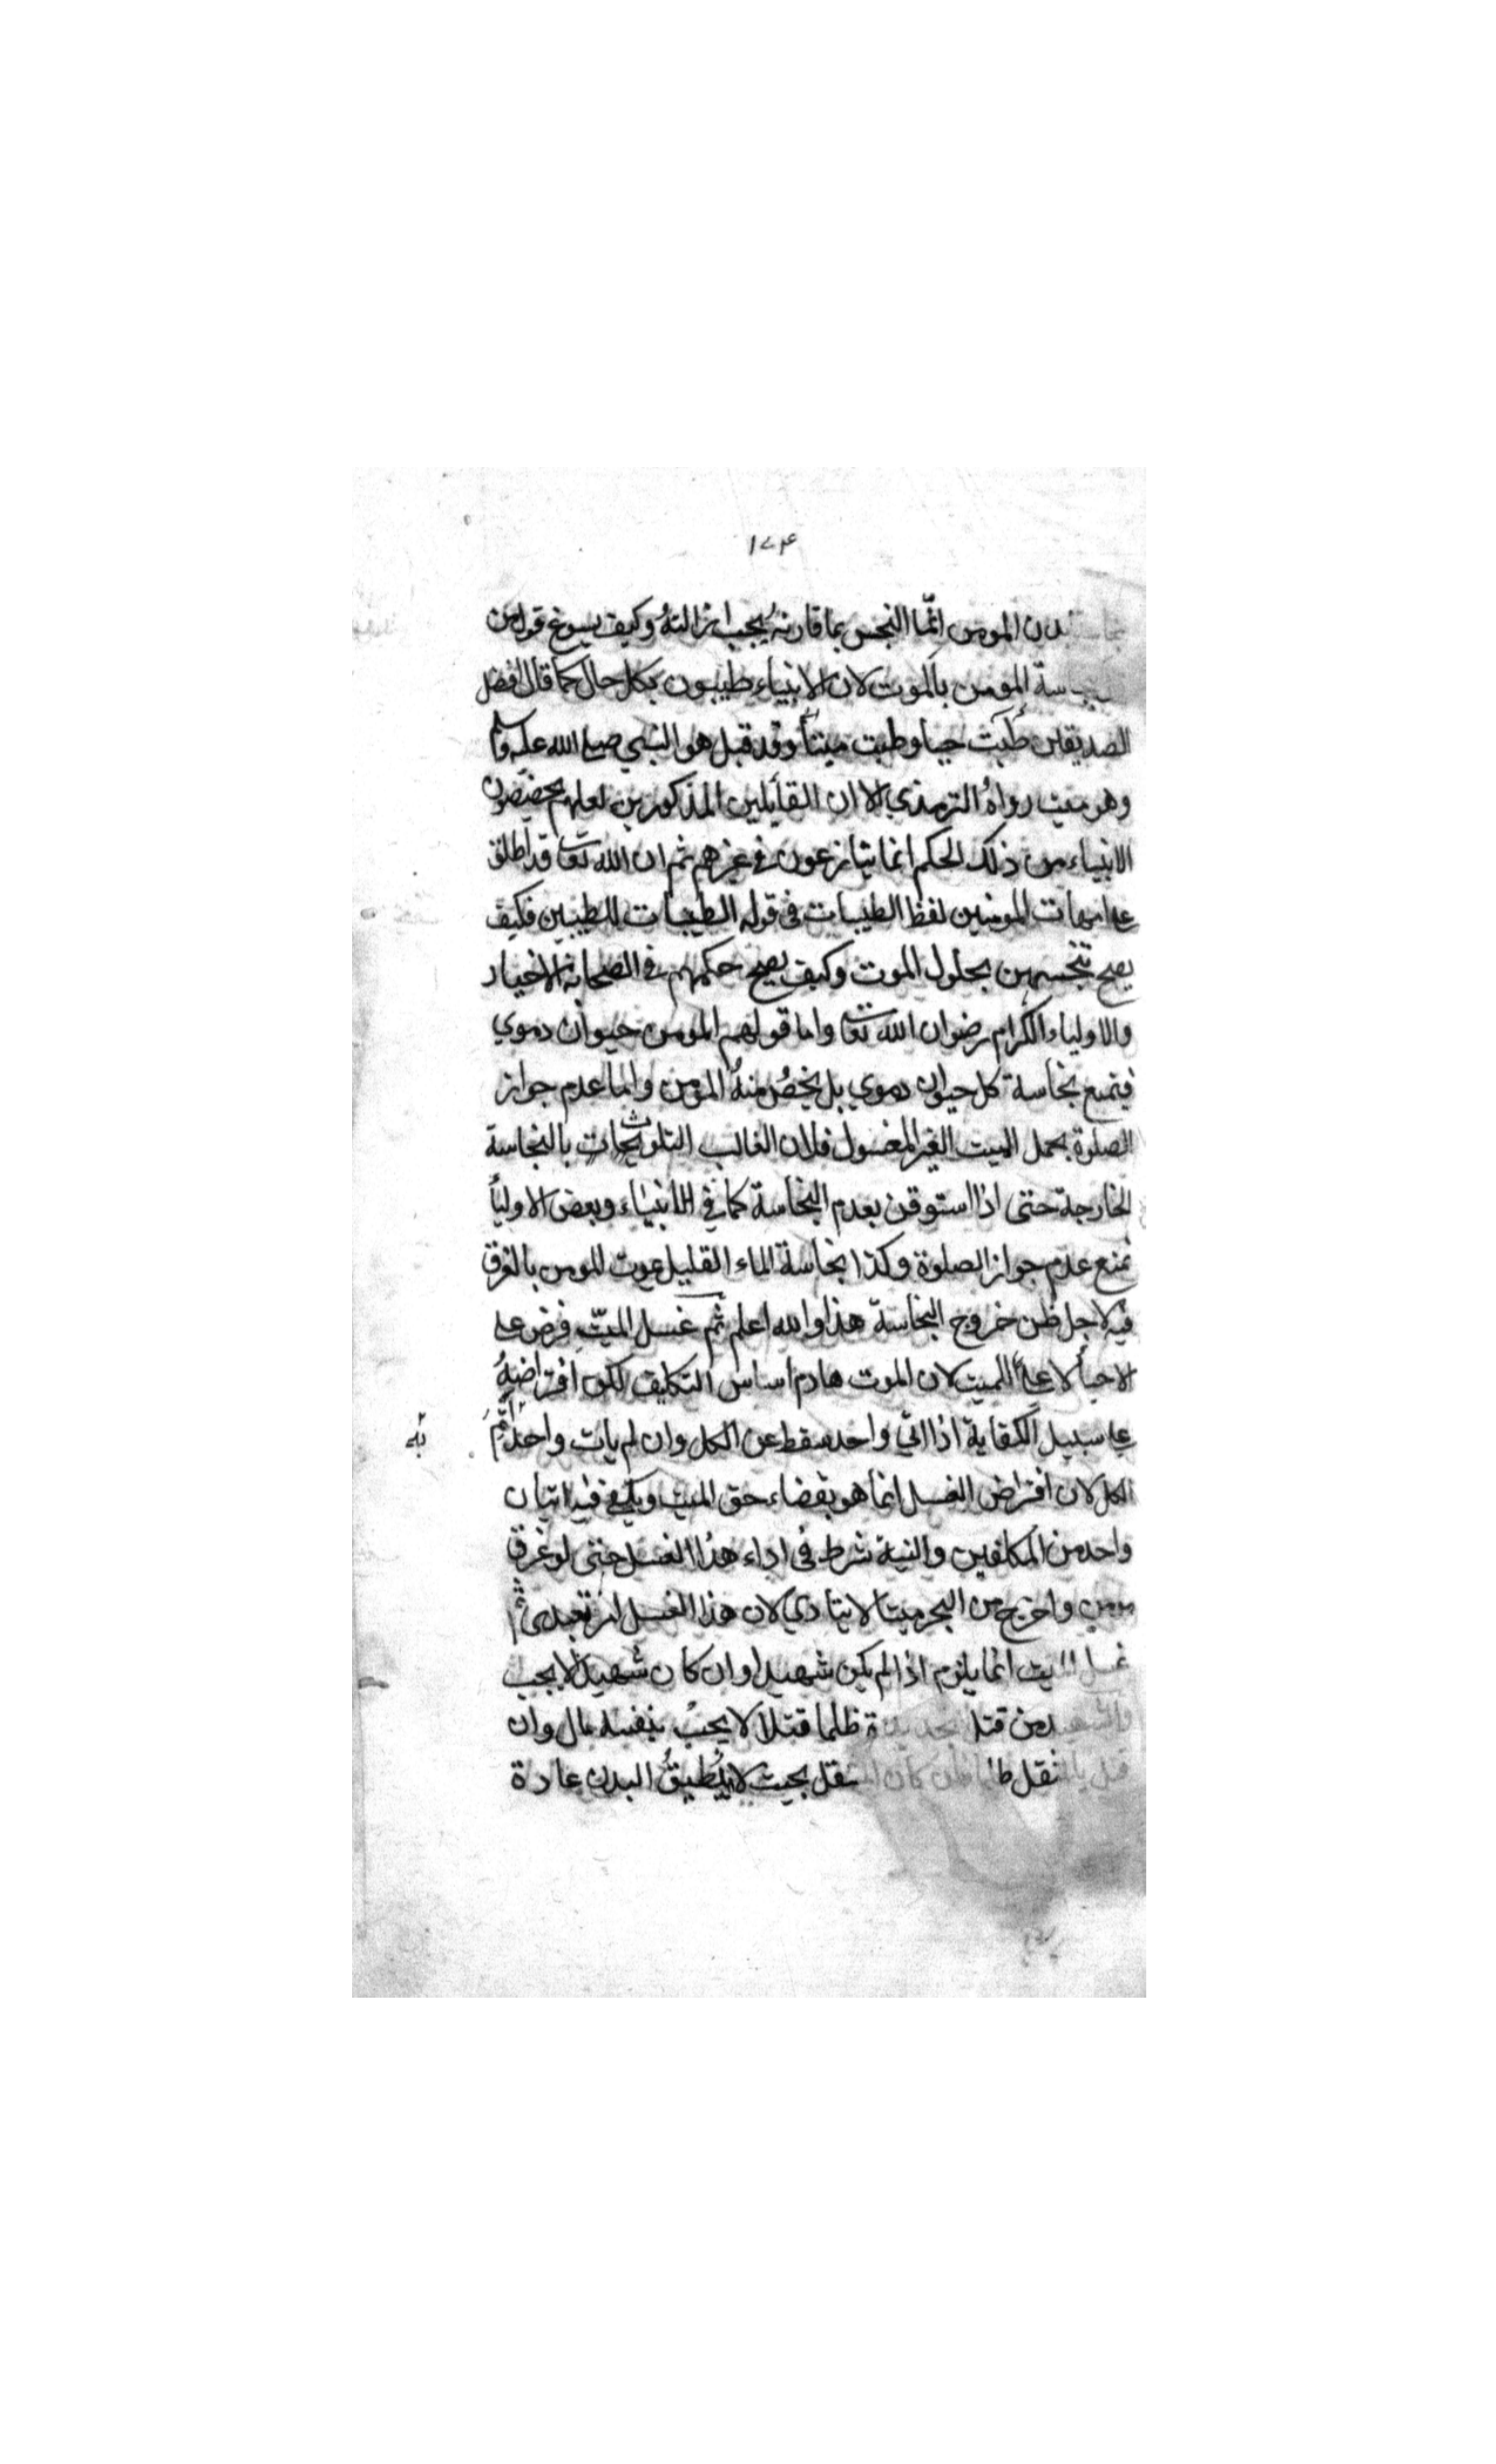 ١٧٤
بدن المومن انما النجس بما قارنه يجب ازالته وكيف يسوغ قول من
المومن بالموت لان الانبياء طيبون بكل حال كما قال افضل
الصديقين طبت حيا وطبت ميتا وقد قبل هو النبي صلى الله عليه وسلم
وهو ميت رواه الترمذي الا ان القائلين المذكورين لعلهم يخصصون
الانبياء من ذلك الحكم انما يتنازعون في غيرهم ثم ان الله تعا قد اطلق
على امهات المومنين لفظ الطيبات في قوله الطيبات للطيبين فكيف
يصح تنجسهن بحلول الموت وكيف يصح حكمهم في الصحابة الاخيار
والاولياء الكرام رضوان الله تعا واما قولهم المومن حيوان دموي
فنمنع نجاسة كل حيوان دموي بل يخص منه المومن واما عدم جواز
الصلوة بحمل الميت الغير المغسول فلان الغالب التلوث بالنجاسة
الخارجة حتى اذا استوقن بعدم النجاسة كما في الانبياء وبعض الاوليا
نمنع عدم جواز الصلوة وكذا نجاسة الماء القليل بموت المومن بالغرق
فيه لاجل ظن خروج النجاسة هذا والله اعلم ثم غسل الميّت فرض على
الاحيا لا على الميت لان الموت هادم اساس التكليف لكن افتراضه
على سبيل الكفاية اذا اتى واحد سقط عن الكل وان لم يات واحد اثم
الكل لان افتراض الغسل انما هو بقضاء حق الميت ويكفي فيه اتيان
واحد من المكلفين والنية شرط في اداء هذا الغسل حتى لو غرق
مومن واخرج من البحر ميتا لا يتادي لان هذا الغسل امر تعبدى ثم
غسل الميت انما يلزم اذا لم يكن شهيدا وان كان شهيدا لا يجب
من قتل بحديدة ظلما قتلا لا يجب بنفسه مال وان
كان بحيث لا يطيق البدن عادة